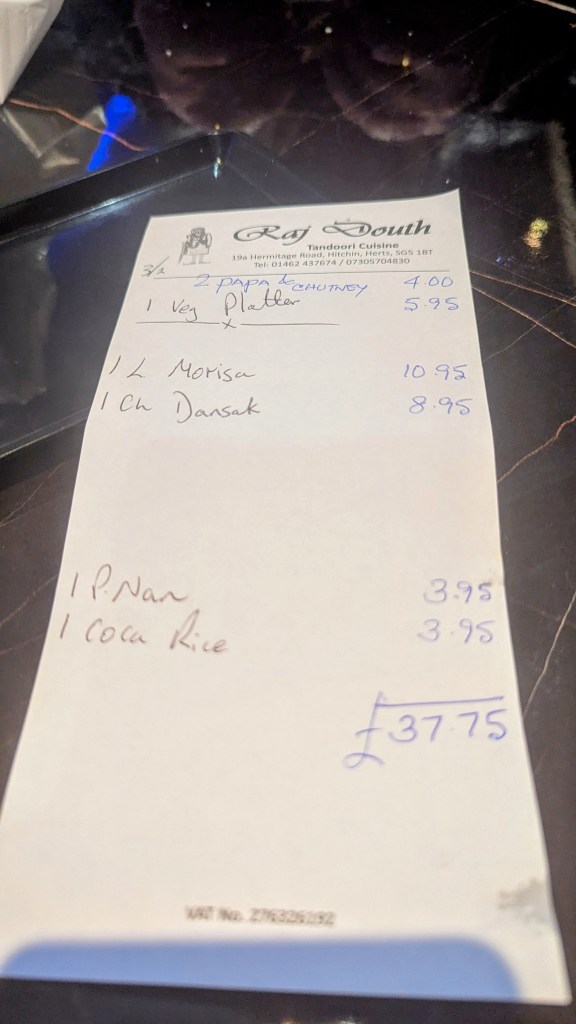 Raj Douth
Tandoori Cuisine
19a Hermitage Road, Hitchin, Herts, SG5 1BT
Tel: 01462 437674 / 07305704830
3/2
2 PAPA & CHUTNEY 4.00
1 Veg Platter 5.95
x
1 L Morisa 10.95
1 Ch Dansak 8.95
1 P. Nan 3.95
1 Coca Rice 3.95
£37.75
VAT No. 276326192